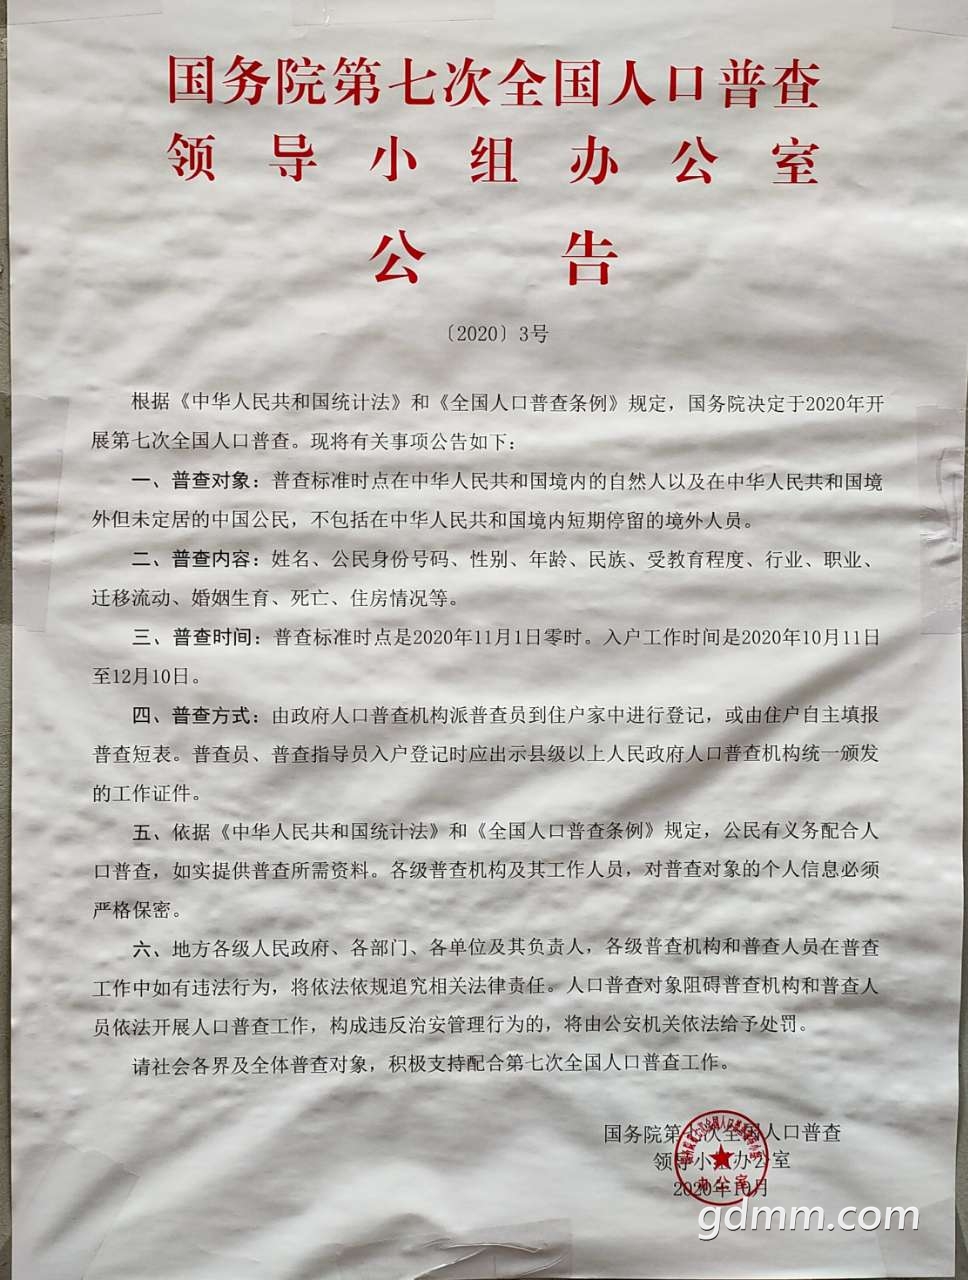 国务院第七次全国人口普查
领导小组办公室
公告
〔2020〕3号
根据《中华人民共和国统计法》和《全国人口普查条例》规定，国务院决定于2020年开
展第七次全国人口普查。现将有关事项公告如下：
一、普查对象：普查标准时点在中华人民共和国境内的自然人以及在中华人民共和国境
外但未定居的中国公民，不包括在中华人民共和国境内短期停留的境外人员。
二、普查内容：姓名、公民身份号码、性别、年龄、民族、受教育程度、行业、职业、
迁移流动、婚姻生育、死亡、住房情况等。
三、普查时间：普查标准时点是2020年11月1日零时。入户工作时间是2020年10月11日
至12月10日。
四、普查方式：由政府人口普查机构派普查员到住户家中进行登记，或由住户自主填报
普查短表。普查员、普查指导员入户登记时应出示县级以上人民政府人口普查机构统一颁发
的工作证件。
五、依据《中华人民共和国统计法》和《全国人口普查条例》规定，公民有义务配合人
口普查，如实提供普查所需资料。各级普查机构及其工作人员，对普查对象的个人信息必须
严格保密。
六、地方各级人民政府、各部门、各单位及其负责人，各级普查机构和普查人员在普查
工作中如有违法行为，将依法依规追究相关法律责任。人口普查对象阻碍普查机构和普查人
员依法开展人口普查工作，构成违反治安管理行为的，将由公安机关依法给予处罚。
请社会各界及全体普查对象，积极支持配合第七次全国人口普查工作。
国务院第七次全国人口普查
领导小组办公室
2020年10月
办公室
gdmm.com